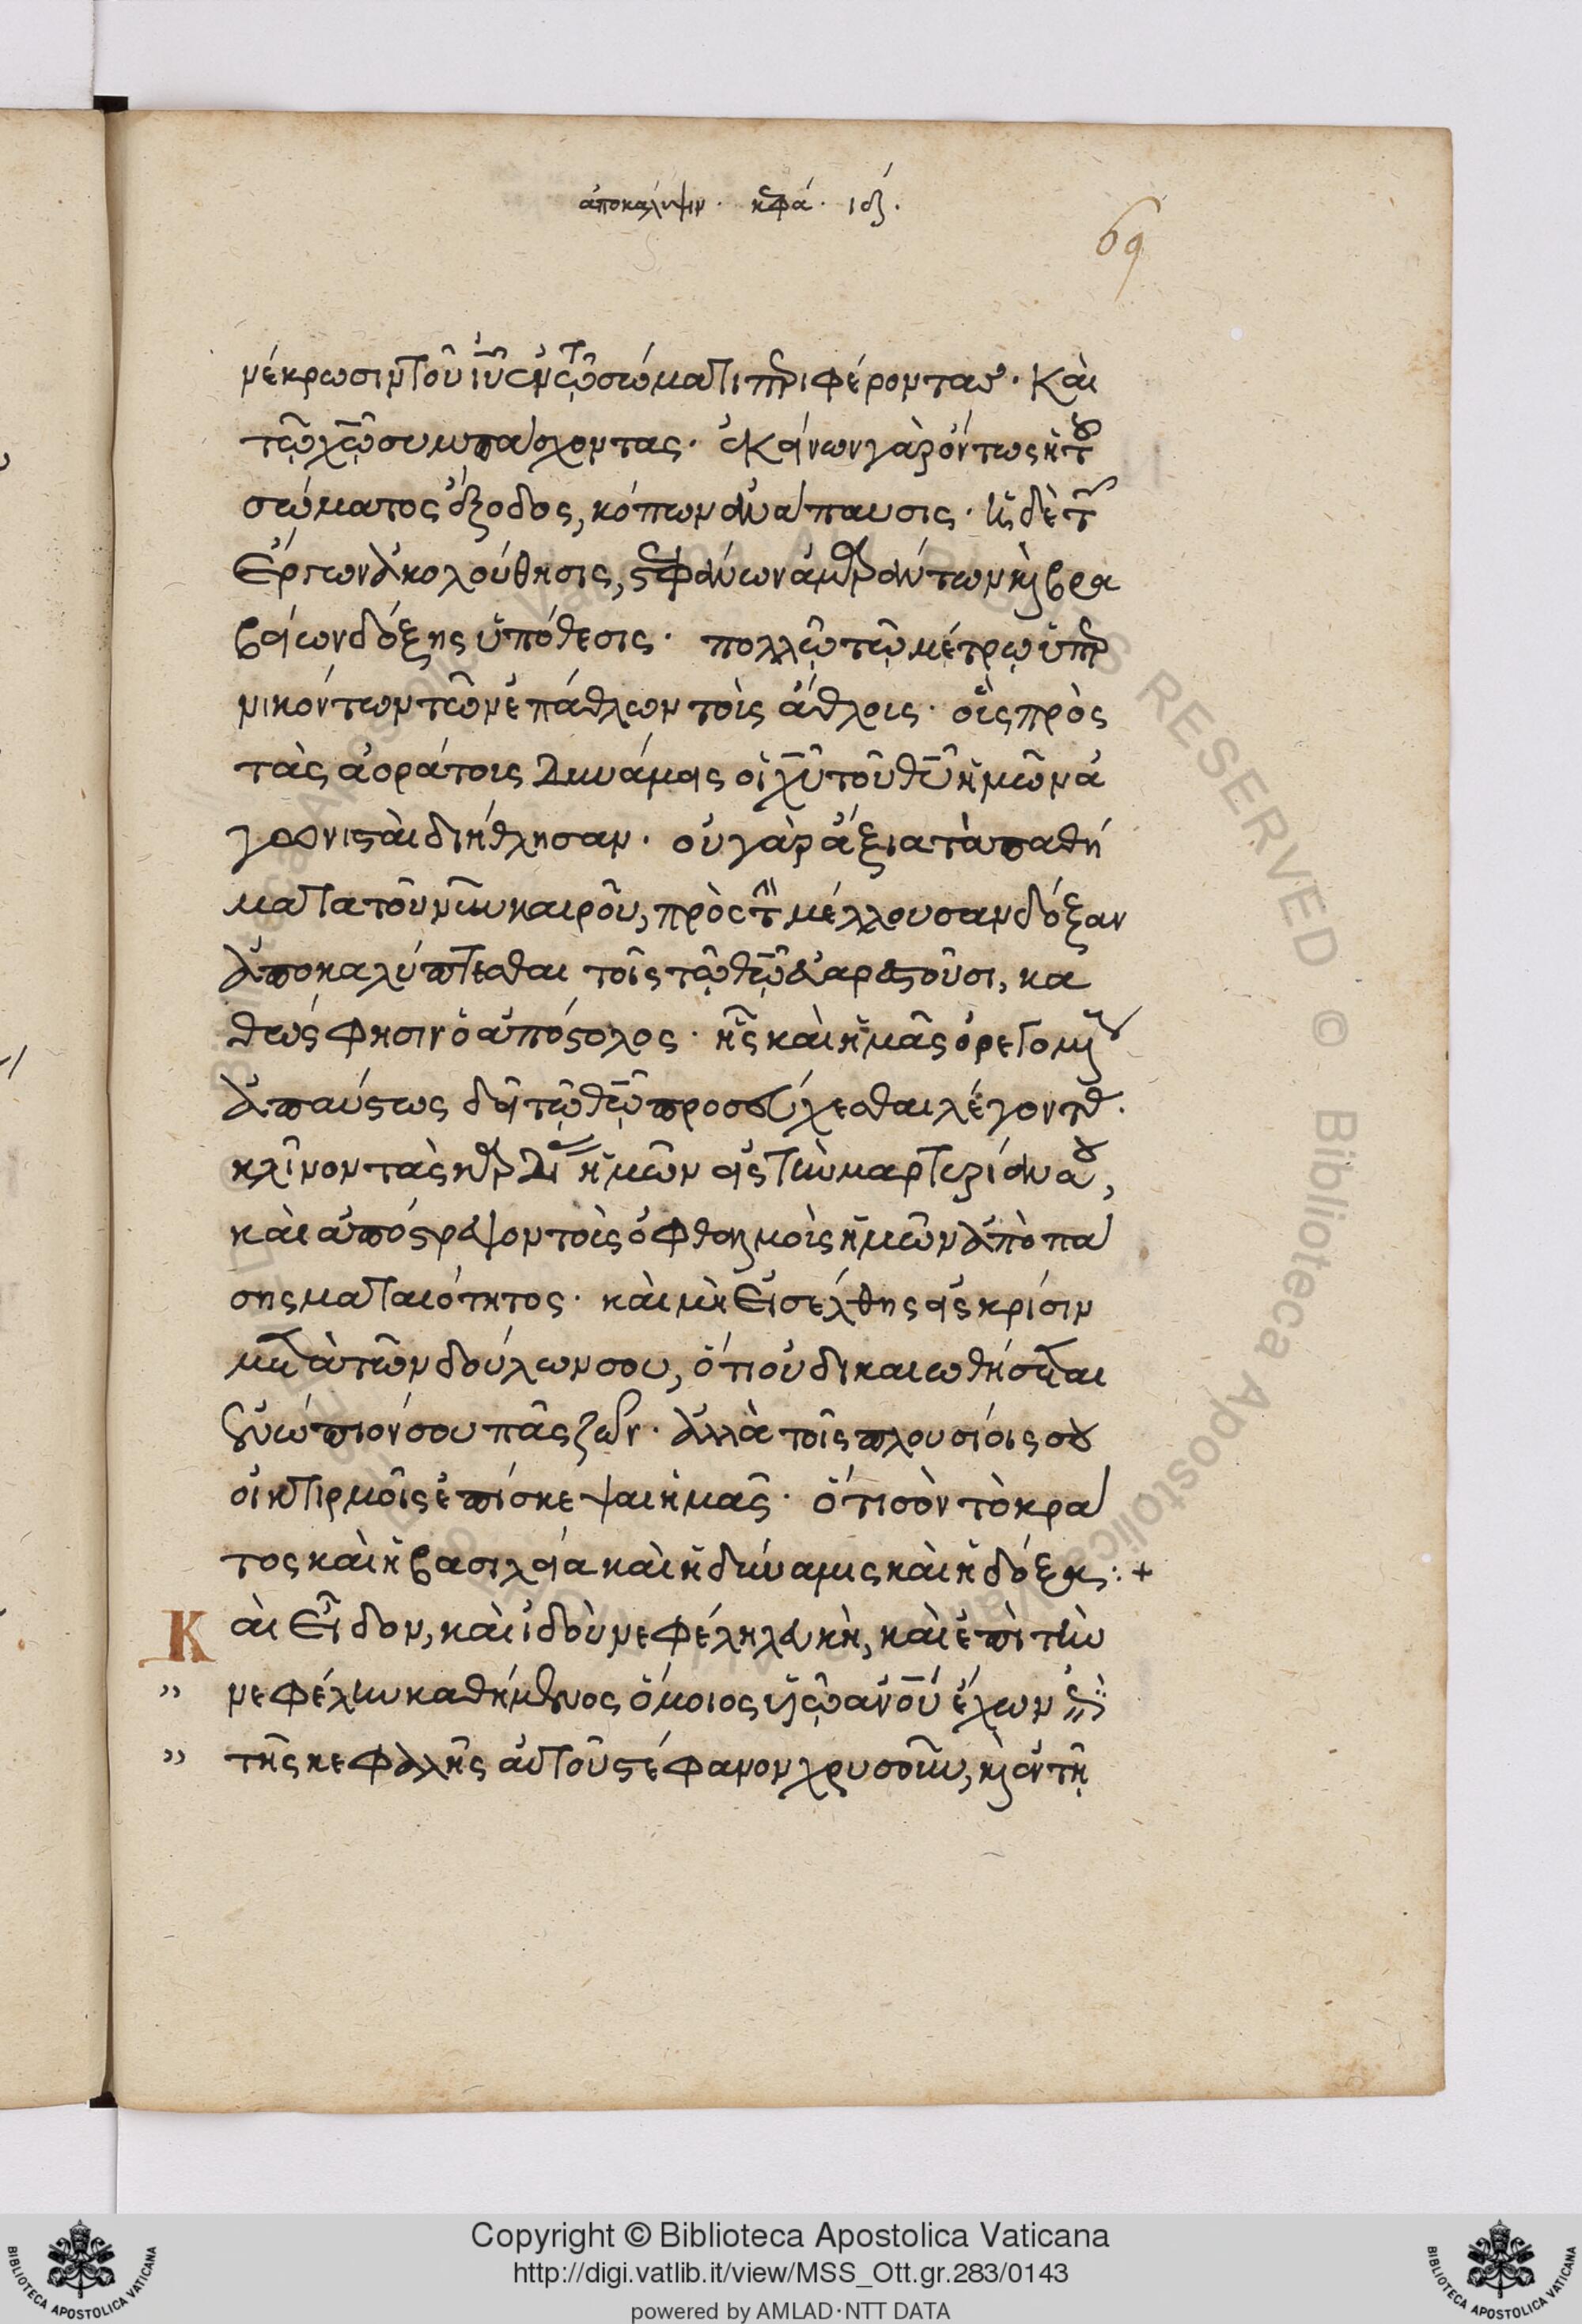 ἀποκαλύψιν. κεφά. ιδ.
69
νέκρωσιν τοῦ ιυ ἐν τῷ σώματι περιφέροντας. Καὶ
τῷ χω συμπάσχοντας. ἐκείνων γὰρ ὄντως ἡ τοῦ
σώματος ἔξοδος, κόπων ἀνάπαυσις. ἡ δὲ τῶν
ἔργων ἀκολούθησις, στεφάνων ἀμαράντων καὶ βρα
βείων δόξης ὑπόθεσις. πολλῷ τῷ μέτρῳ ὑπερ
νικόντων τῶν ἐπάθλων τοὺς ἄθλους. οὓς πρὸς
τὰς ἀοράτους δυνάμεις οἱ χυ τοῦ θυ ἡμῶν ἀ
γωνισταὶ διήθλησαν. οὐ γὰρ ἄξια τὰ παθή
ματα τοῦ νῦν καιροῦ, πρὸς τὴν μέλλουσαν δόξαν
ἀποκαλύπτεσθαι τοῖς τῷ θω εὐαρεστοῦσι, κα
θώς φησιν ὁ ἀπόστολος. ἧς καὶ ἡμᾶς ὀρεγομένους
ἀπαύστως δεῖ τῷ θω προσεύχεσθαι λέγοντας.
κλῖνον τὰς καρδίας ἡμῶν εἰς τὰ μαρτύριά σου,
καὶ ἀπόστρεψον τοὺς ὀφθαλμοὺς ἡμῶν ἀπὸ πά
σης ματαιότητος. καὶ μὴ εἰσέλθης εἰς κρίσιν
μετὰ τῶν δούλων σου, ὅτι οὐ δικαιωθήσεται
ἐνώπιόν σου πᾶς ζῶν. ἀλλὰ τοῖς πλουσίοις σου
οἰκτιρμοῖς ἐπίσκεψαι ἡμᾶς. ὅτι σὸν τὸ κρά
τος καὶ ἡ βασιλεία καὶ ἡ δύναμις καὶ ἡ δόξα :+
Καὶ εἶδον, καὶ ἰδοὺ νεφέλη λευκὴ, καὶ ἐπὶ τὴν
” νεφέλην καθήμενος ὅμοιος υἱῷ ανου ἔχων ἐπὶ
” τῆς κεφαλῆς αὐτοῦ στέφανον χρυσοῦν, καὶ ἐν τῇ
Copyright © Biblioteca Apostolica Vaticana
http://digi.vatlib.it/view/MSS_Ott.gr.283/0143
powered by AMLAD·NTT DATA